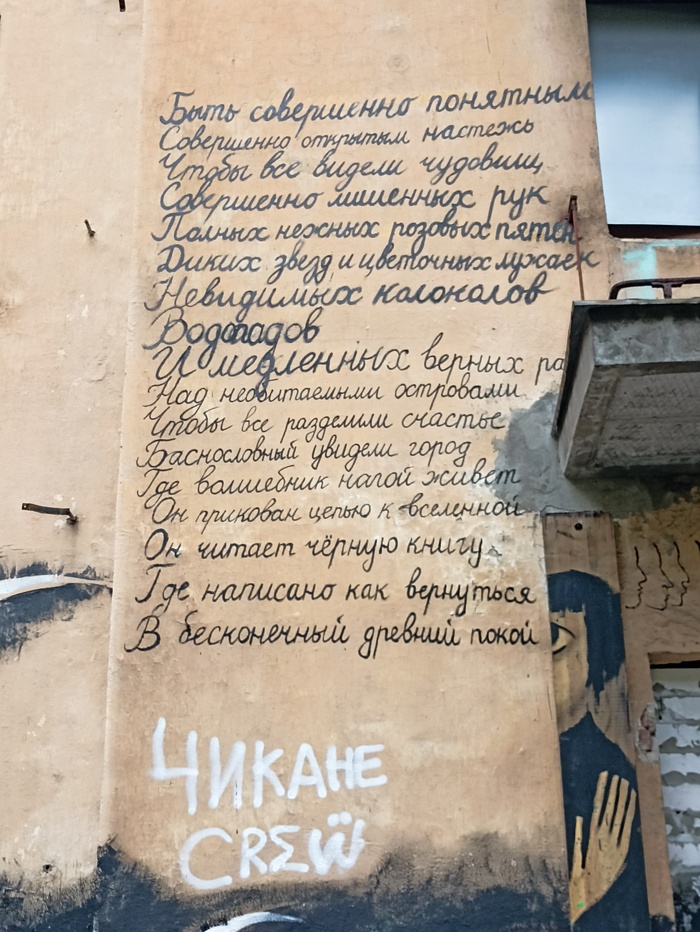 Быть совершенно понятным
Совершенно открытым настежь
Чтобы все видели чудовищ
Совершенно лишенных рук
Полных нежных розовых пятен
Диких звезд и цветочных лужаек
Невидимых колоколов
Водопадов
И медленных верных
Над необитаемыми островами
Чтобы все разделили счастье
Баснословный увидели город
Где волшебник нагой живет
Он прикован цепью к вселенной
Он читает чёрную книгу
Где написано как вернуться
В бесконечный древний покой
ЧИКАНЕ
CRΣẄ